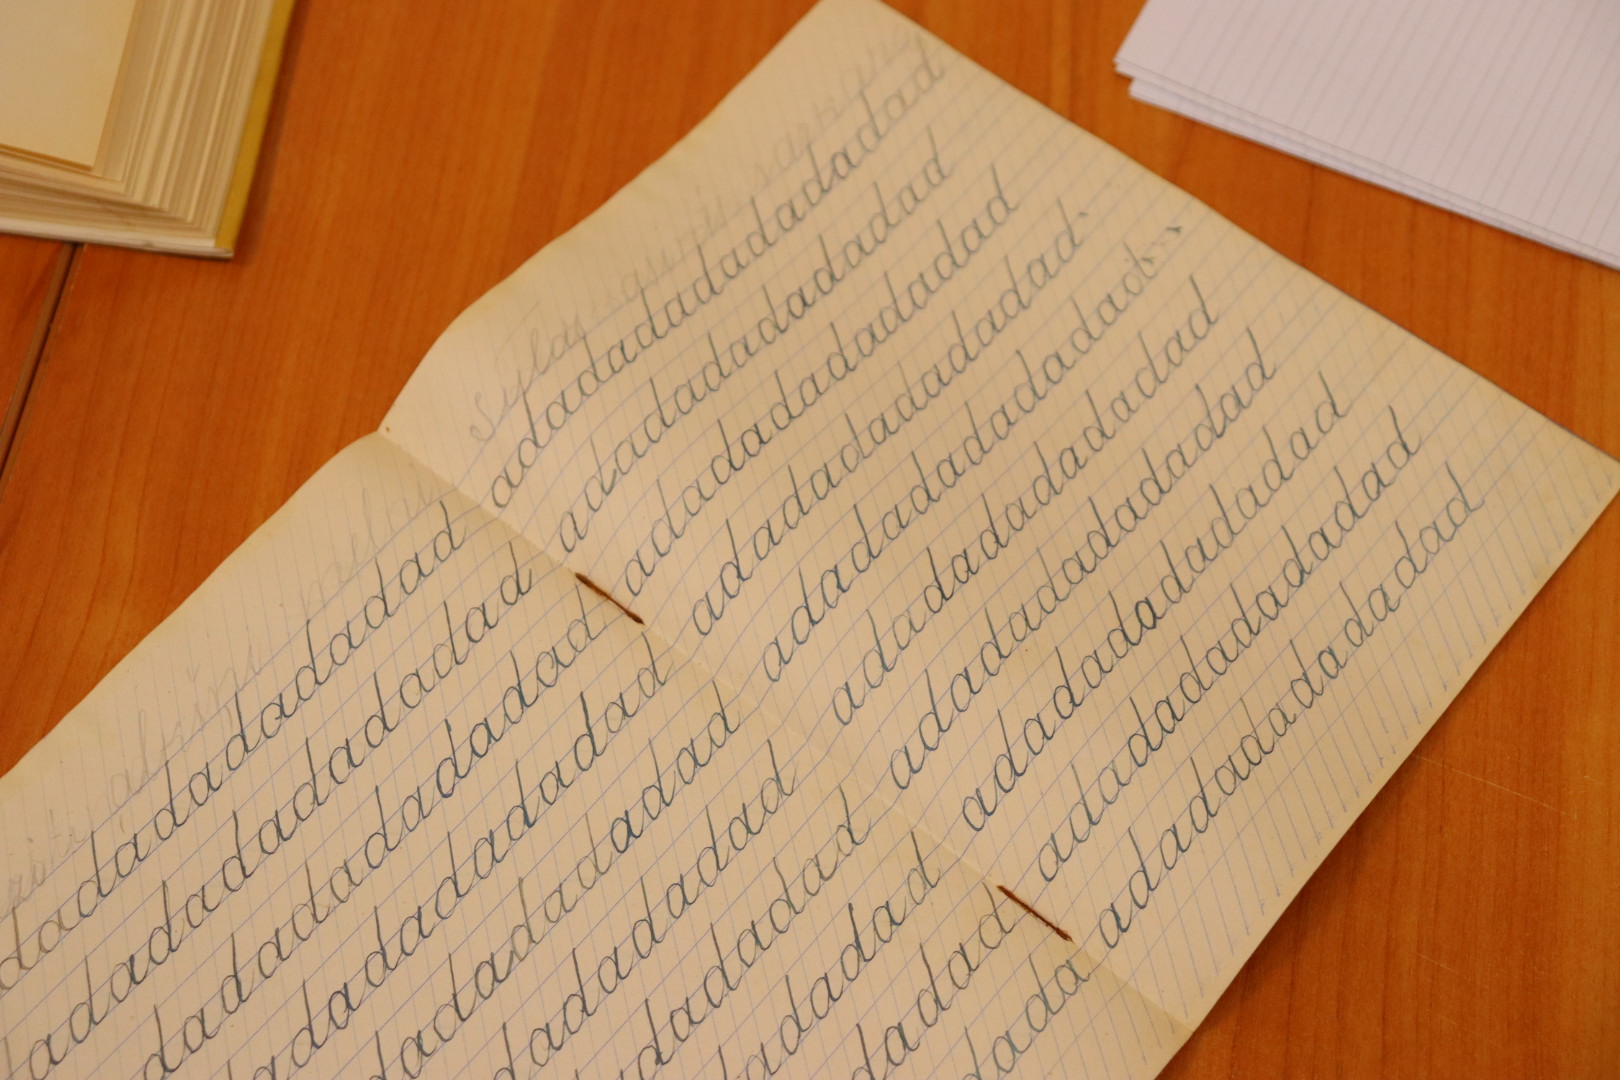 dadadadadadadadad
adadadadadadadadad
dadadadadadadadad
adadadadadadadad
dadadadadadadad
dadadadadadad
dadadadadad
dadadadad
dadadad
dada
adadadadadadadad
adadadadadadadad
adadadadadadadad
adadadadadadadad
adadadadadadad
adadadadadadadad
adadadadadadadad
adadadadadadadad
adadadadadadadad
adadadadadadadad